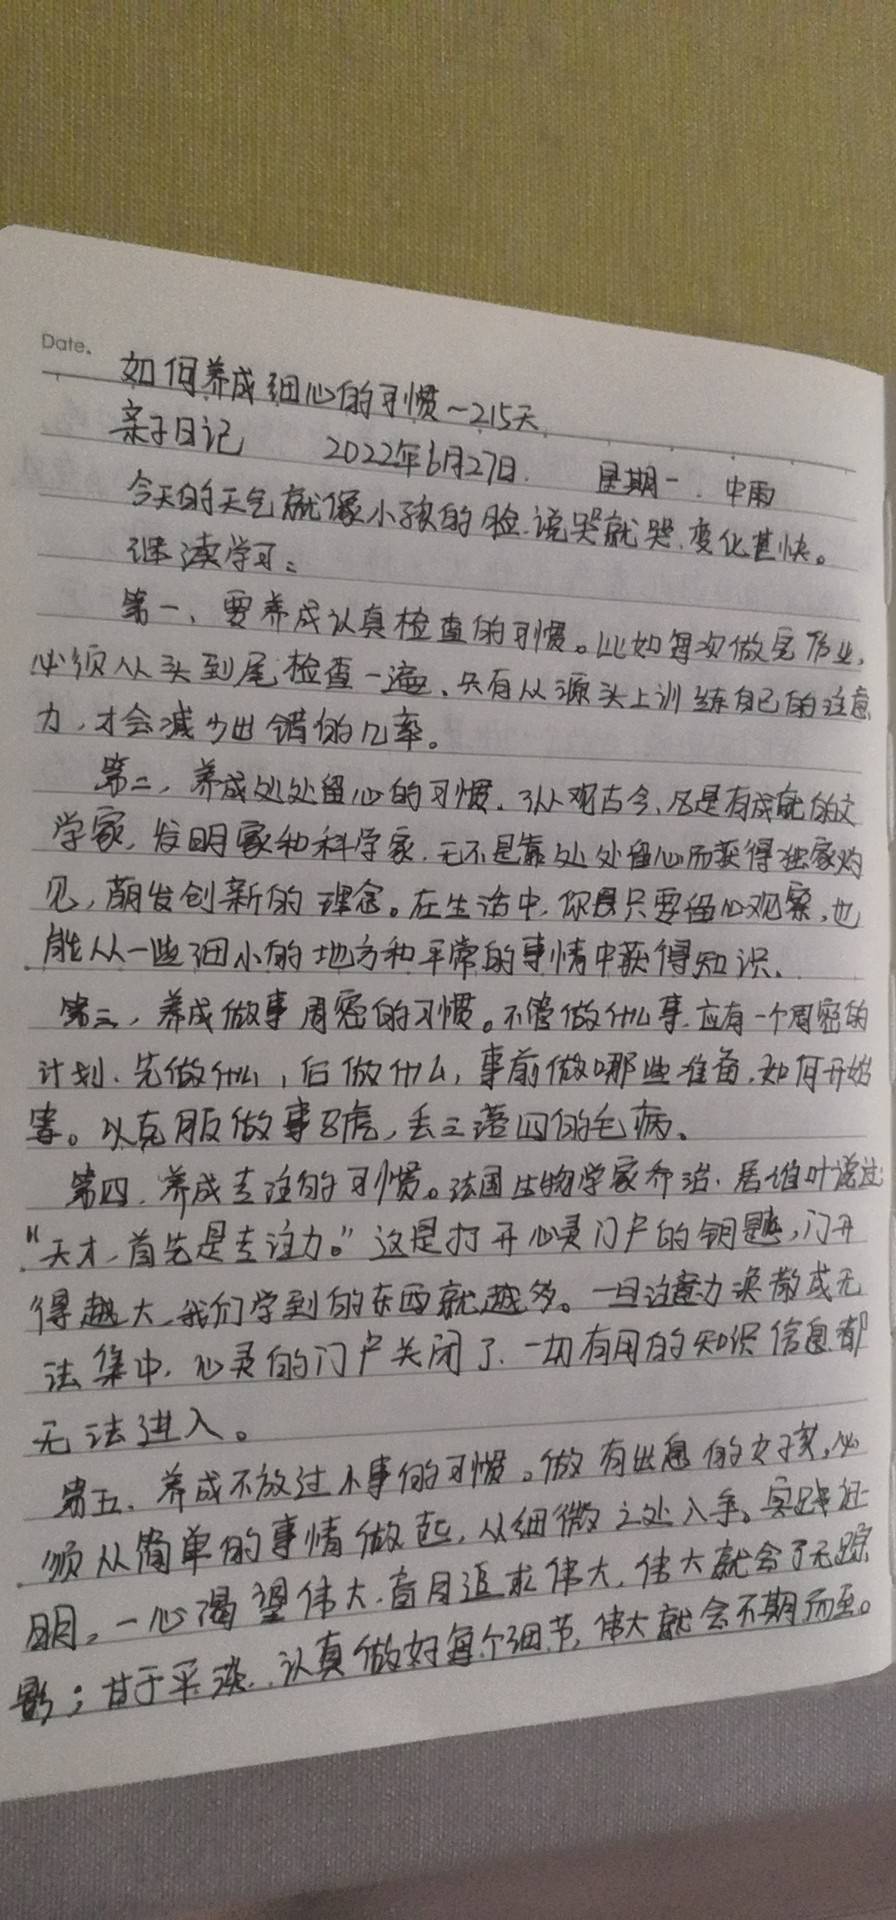 Date.
如何养成细心的习惯～215天
亲子日记 2022年6月27日. 星期一. 中雨
今天的天气就像小孩的脸.说哭就哭.变化甚快。
继续学习:
第一、要养成认真检查的习惯。比如每次做完作业,
必须从头到尾检查一遍、只有从源头上训练自己的注意
力,才会减少出错的几率。
第二,养成处处留心的习惯.纵观古今,凡是有成就的文
学家,发明家和科学家.无不是靠处处留心而获得独家灼
见,萌发创新的理念。在生活中,你只要留心观察,也
能从一些细小的地方和平常的事情中获得知识.
第三,养成做事周密的习惯。不管做什么事.应有一个周密的
计划、先做什么,后做什么,事前做哪些准备.如何开始
等。以克服做事马虎,丢三落四的毛病.
第四.养成专注的习惯。法国生物学家乔治.居维叶说过:
“天才,首先是专注力。”这是打开心灵门户的钥匙,门开
得越大,我们学到的东西就越多。一旦注意力涣散或无
法集中,心灵的门户关闭了.一切有用的知识信息都
无法进入。
第五.养成不放过小事的习惯。做有出息的女孩,必
须从简单的事情做起,从细微之处入手。实践证
明,一心渴望伟大.盲目追求伟大,伟大就会了无踪
影;甘于平淡.认真做好每个细节,伟大就会不期而至。